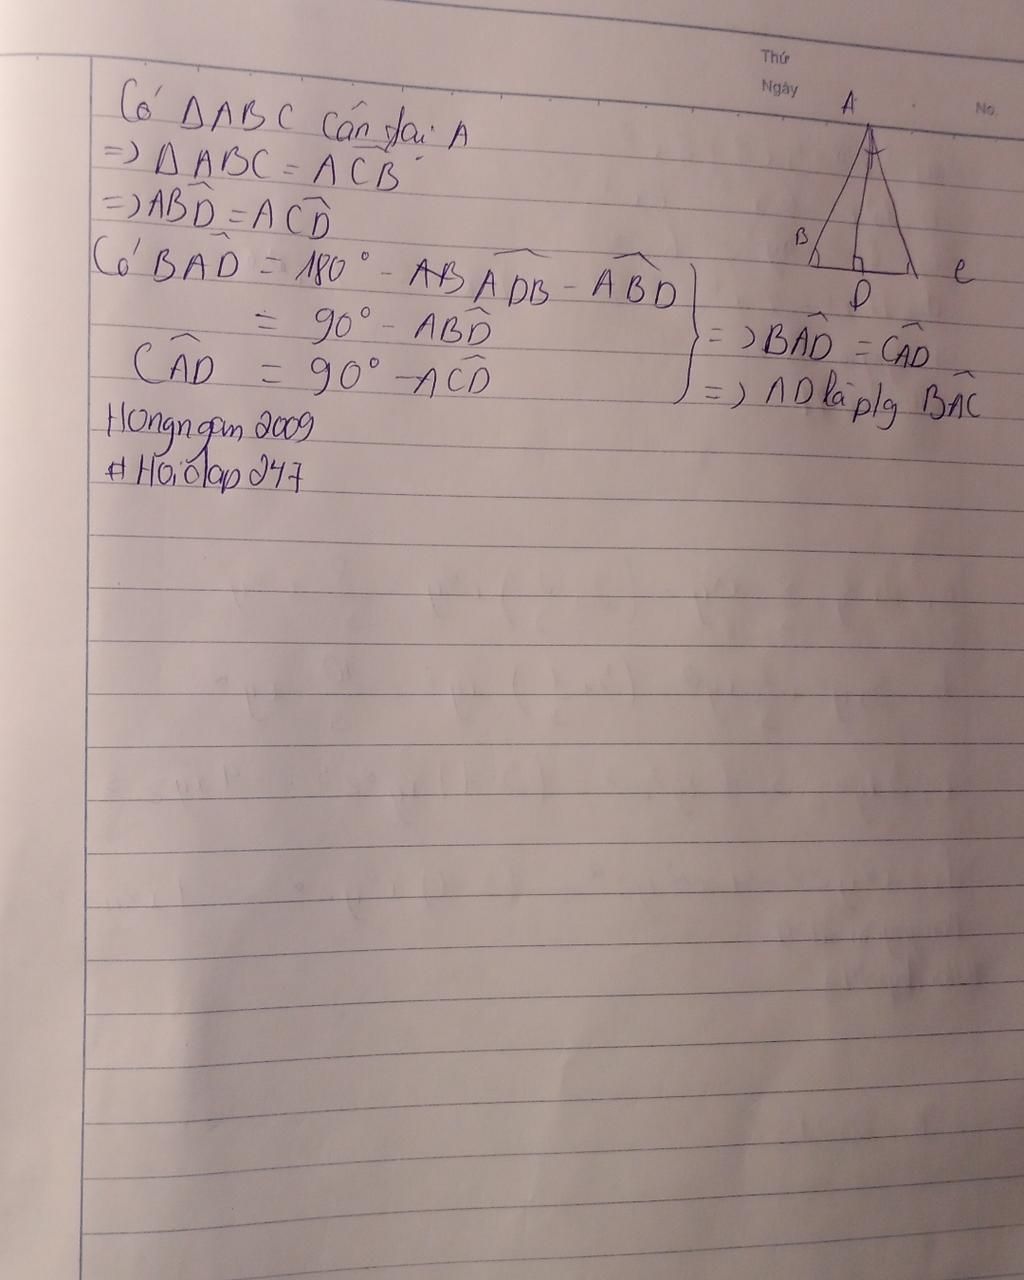 Thứ
Ngày
No.
Có ΔABC cân tại A
=> ΔABC = ACB
=> ABD = ACD
Có BAD = 180° - AB ADB - ABD
= 90° - ABD
CAD = 90° - ACD
=> BAD = CAD
=> AD là p/g BAC
Hongngan2009
#Hoidap247
A
B
D
C